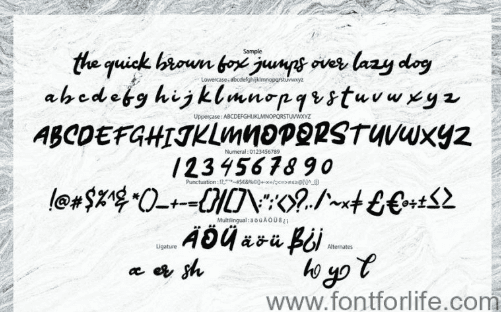 Sample
the quick brown fox jumps over lazy dog
Lowercase : abcdefghijklmnopqrstuvwxyz
abcdefghijklmnopqrstuvwxyz
Uppercase : ABCDEFGHIJKLMNOPQRSTUVWXYZ
ABCDEFGHIJKLMNOPQRSTUVWXYZ
Numeral : 0123456789
1234567890
Punctuation :
!@#$%^& *()_+-={}|[]\:";'<>?,./`~×≠£€÷±≤≥
Multilingual : ä ö ü Ä Ö Ü ß ¿ ¡
Ligature ÄÖÜ äöü ß¿¡ Alternates
er sh
www.fontforlife.com